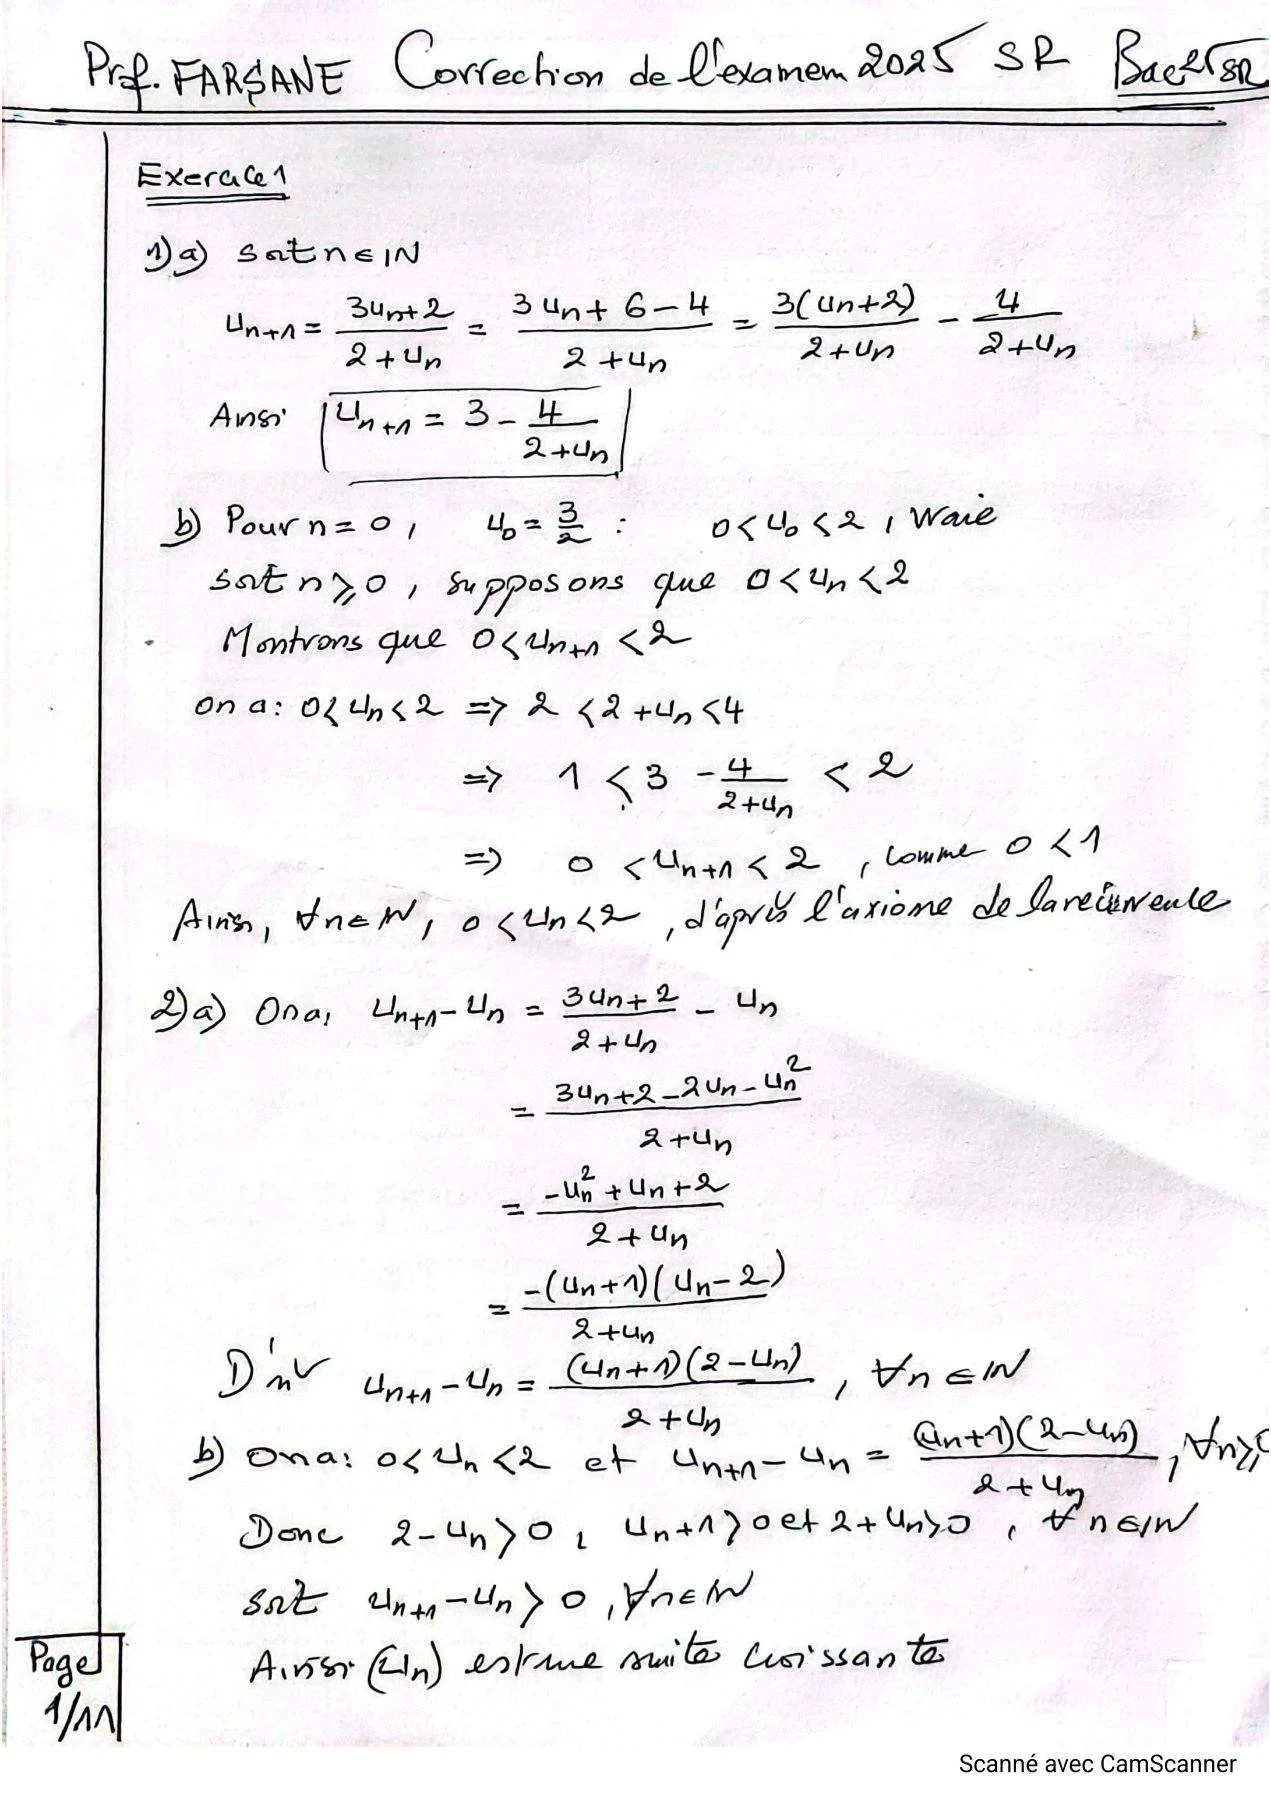 Prof. FARSANE Correction de l'examen 2025 SR Bac2 SR
Exercice 1
1)a) soit n∈IN
u_{n+1} = (3u_n+2)/(2+u_n) = (3u_n+6-4)/(2+u_n) = 3(u_n+2)/(2+u_n) - 4/(2+u_n)
Ainsi u_{n+1} = 3 - 4/(2+u_n)
b) Pour n=0, u_0 = 3/2 : 0<u_0<2, vraie
soit n⩾0, supposons que 0<u_n<2
Montrons que 0<u_{n+1}<2
on a: 0<u_n<2 => 2<2+u_n<4
=> 1<3 - 4/(2+u_n) < 2
=> 0<u_{n+1}<2, comme 0<1
Ainsi, ∀n∈IN, 0<u_n<2, d'après l'axiome de la récurrence
2)a) On a, u_{n+1}-u_n = (3u_n+2)/(2+u_n) - u_n
= (3u_n+2-2u_n-u_n²)/(2+u_n)
= (-u_n²+u_n+2)/(2+u_n)
= -(u_n+1)(u_n-2)/(2+u_n)
D'où u_{n+1}-u_n = (u_n+1)(2-u_n)/(2+u_n), ∀n∈IN
b) on a: 0<u_n<2 et u_{n+1}-u_n = (u_n+1)(2-u_n)/(2+u_n), ∀n⩾0
Donc 2-u_n>0, u_n+1>0 et 2+u_n>0, ∀n∈IN
soit u_{n+1}-u_n>0, ∀n∈IN
Ainsi (u_n) est une suite croissante
Page
1/11
Scanné avec CamScanner